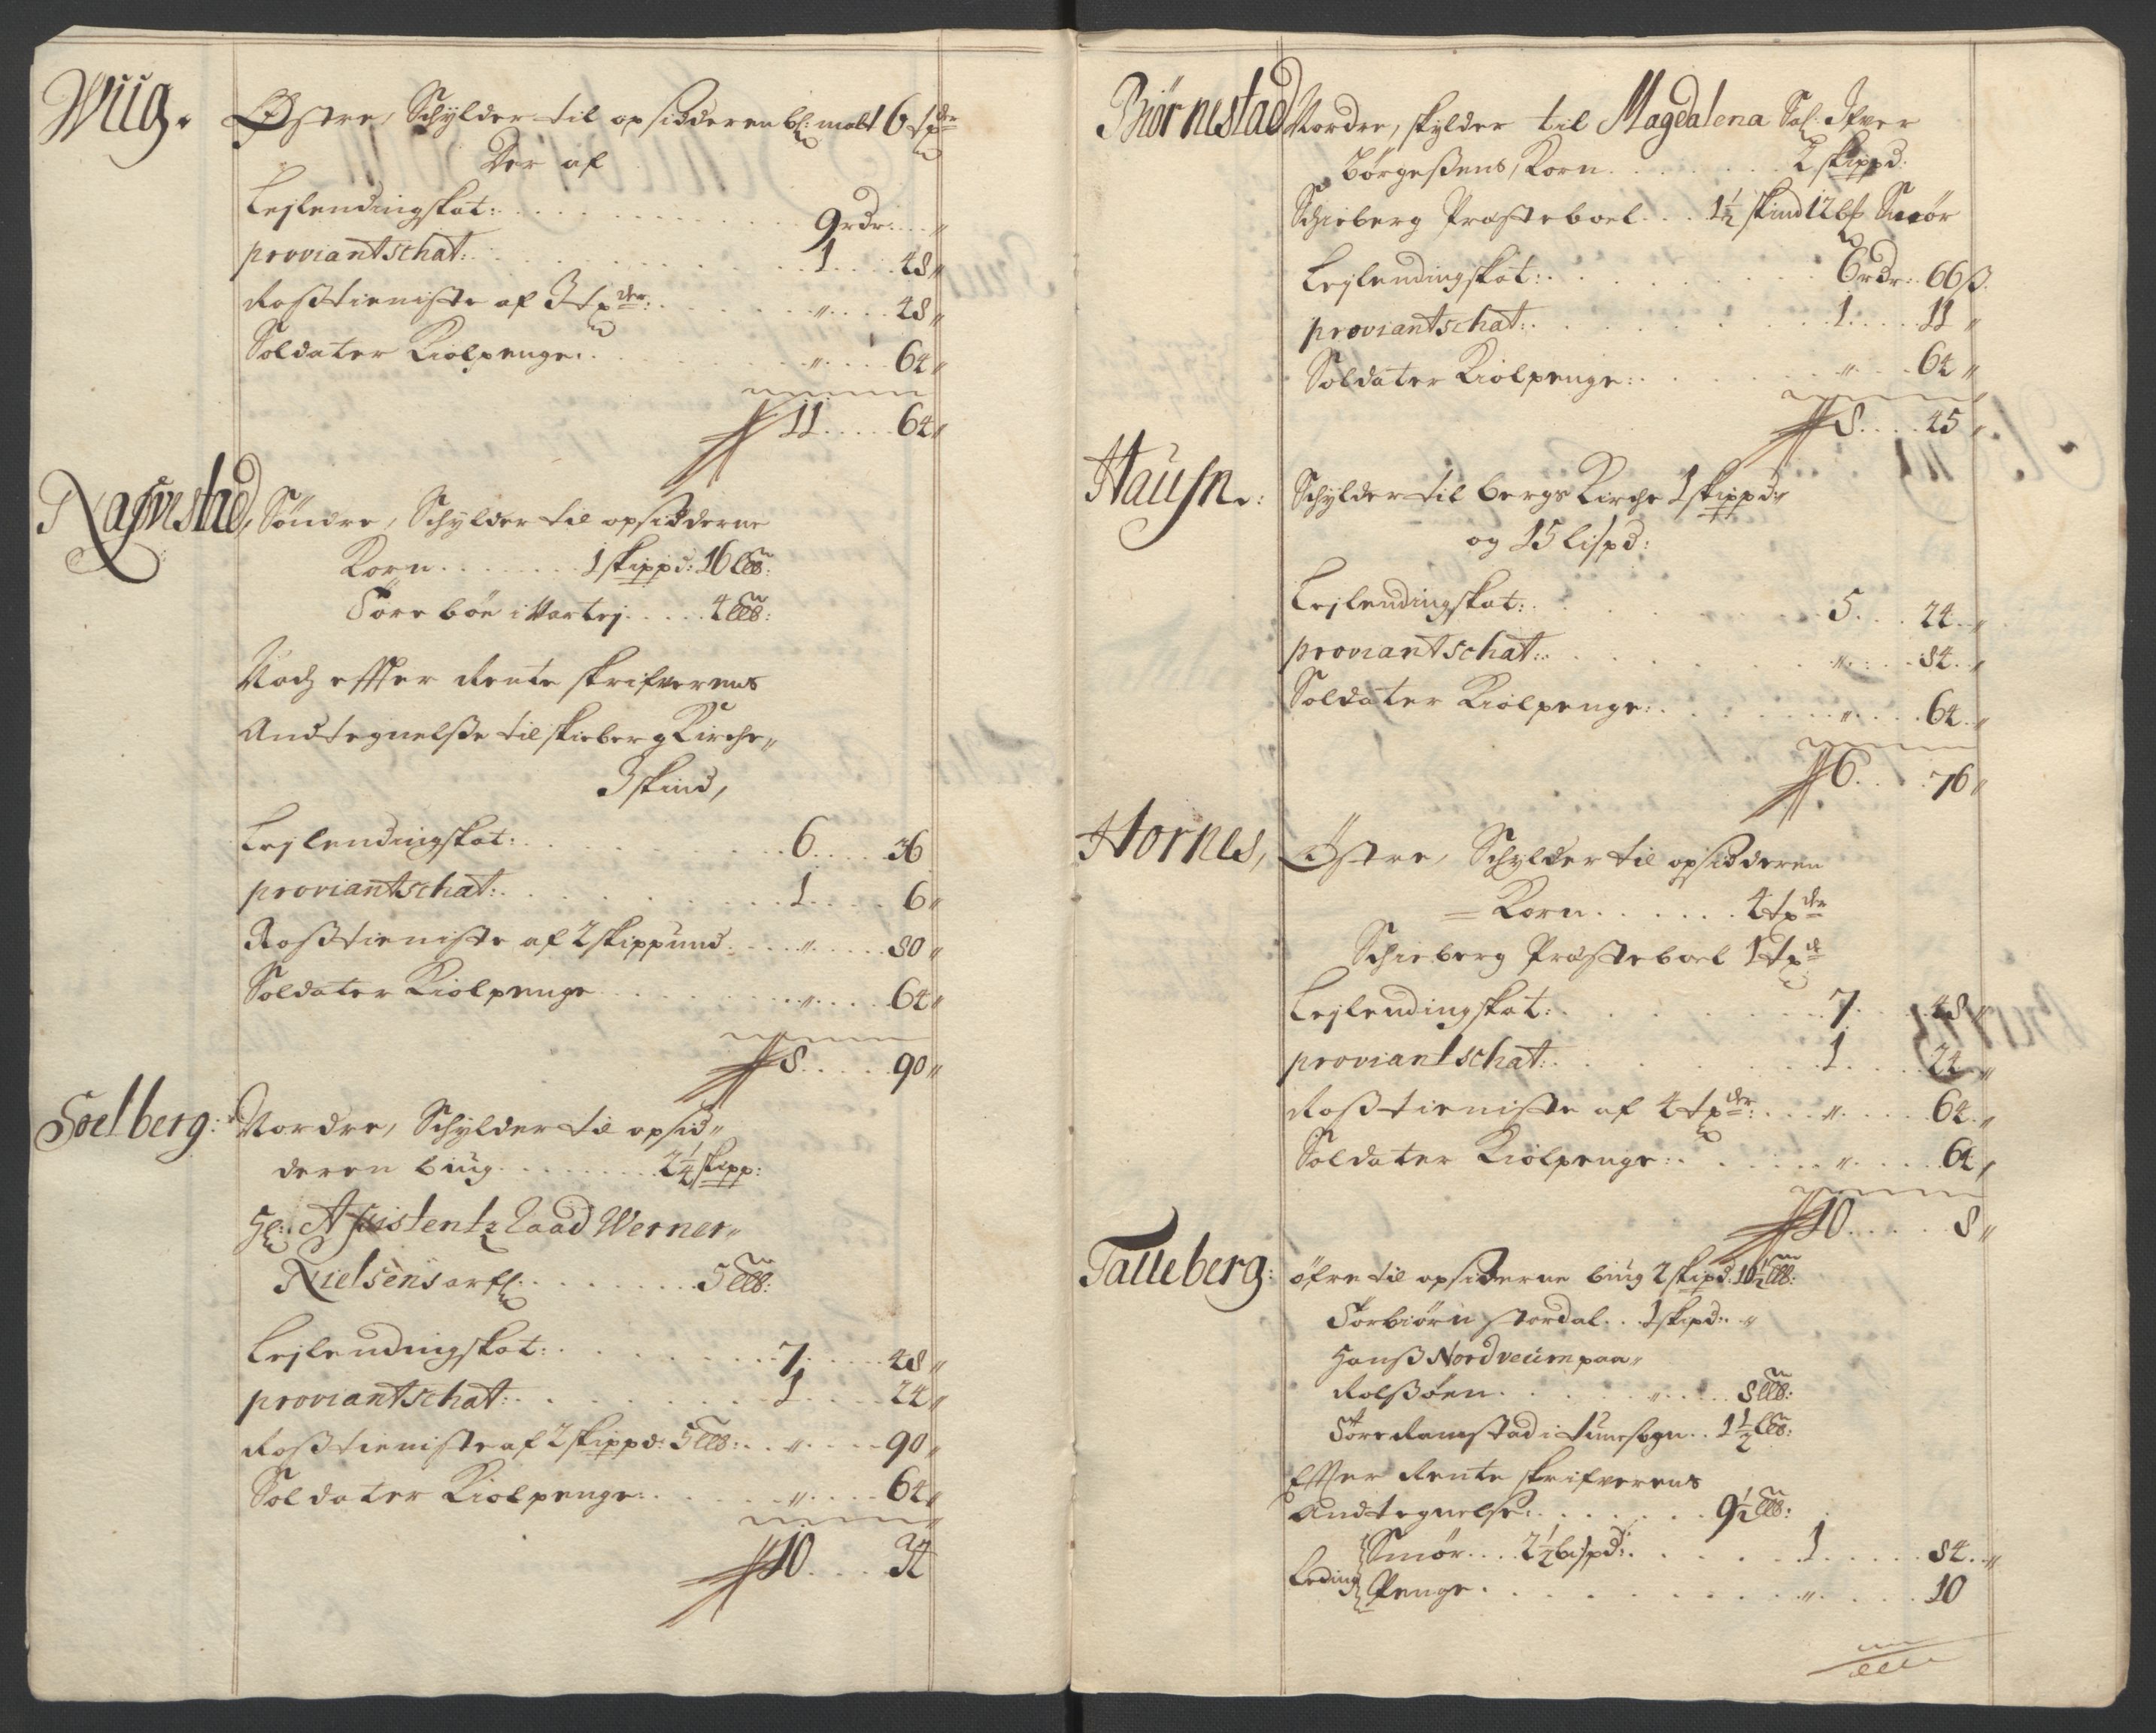 Wiig.
Østre, Schylder til opsidderen bl: malt 6 tpder
Der af
Lejlendingskat: 9 rdr: "
proviantschat: 1 48 "
Rosstieniste af 3 tpder: " 48 "
Soldater Kiolpenge: " 64 "
11 64 "
Nafvestad, Søndre, Schylder til opsidderne
Korn 1 skippd: 16 Lb:
Tore böe i Vartej 4 Lb:
Noch effter Rente skrifverens
Andtegnelsse til skieberg Kirche,,
3 skind,
Lejlendingskat: 6 36
proviantschat: 1 6 "
Rosstieniste af 2 skippund " 80 "
Soldater Kiolpenge " 64 "
8 90 "
Soelberg: Nordre, Schylder til opsid,,
deren biug 2 1/4 skipp:
Hl: Assistentz Raad Werner,,
Nielsens arfl: 5 Lb:
Lejlendingskat: 7 48 "
proviantschat: 1 24 "
Rosstieniste af 2 skippd: 5 Lb: " 90 "
Soldater Kiolpenge: " 64 "
10 34
Biørnestad Nordre, skylder til Magdalena Sal: Ifver
Börgessens, Korn 2 skippd:
Schieberg Præsteboel 1 1/2 skind 12 bp Smör
Lejlendingskat: 6 rdr: 66 ß.
proviantschat: 1 11 "
Soldater Kiolpenge: " 64 "
8 45 "
Haugn: Schylder til bergs Kirche 1 skippd:
og 15 lispd:
Lejlendingskat: 5 24 "
proviantschat: " 84 "
Soldater Kiolpenge: " 64 "
6 76 "
Hornes, Østre, Schylder til opsidderen
Korn 4 tpder
Schieberg Præsteboel 1 tpde
Lejlendingskat: 7 48 "
proviantschat: 1 24 "
Rosstieniste af 4 tpder: " 64 "
Soldater Kiolpenge: " 64 "
10 8 "
Talleberg: öfre til opsiderne biug 2 skipd: 10 1/2 Lb:
Torbiörn stordal 1 skipd: "
Hanss Nordveum paa,,
Rolssöen " 8 Lb:
Tore Ramstad i tunesogn 1 1/2 Lb:
Effter Rente skrifverens
Andtegnelse: 9 1/2 Lb:
Leding Smør 2 1/2 bispd: 1 84 "
Penge " 10